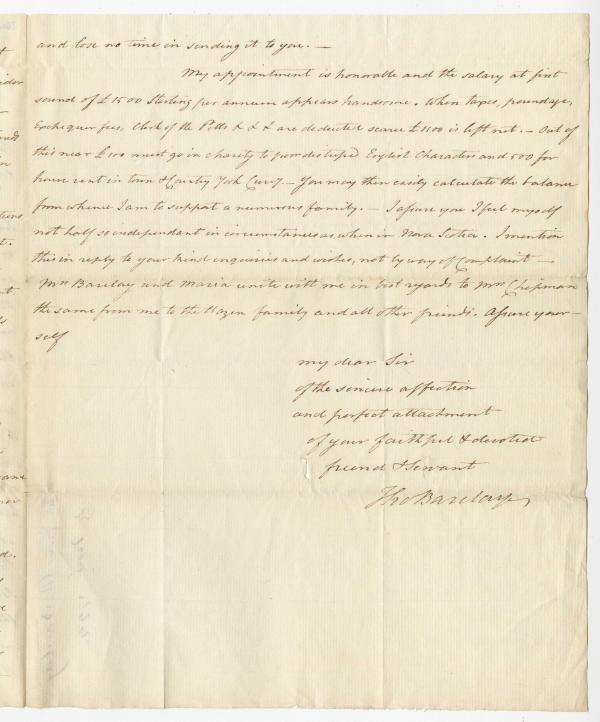 and lose no time in sending it to you. —
My appointment is honorable and the salary at first
sound of £1500 Sterling per annum appears handsome. When taxes, poundage,
Exchequer fees, Clerk of the Pells & & & are deducted scarce £1100 is left net. — Out of
this near £100 must go in charity to poor distressed English Characters and 500 for
house rent in town & Country York Curr.y. — You may then easily calculate the balance
from whence I am to support a numerous family. — I assure you I feel myself
not half so independant in circumstances as when in Nova Scotia. I mention
this in reply to your kind enquiries and wishes, not by way of Complaint —
Mrs Barclay and Maria unite with me in best regards to Mrs Chipman
the same from me to the Hazen family and all other friends. Assure your-
self
my dear Sir
of the sincere affection
and perfect attachment
of your faithful & devoted
friend & Servant
Tho Barclay